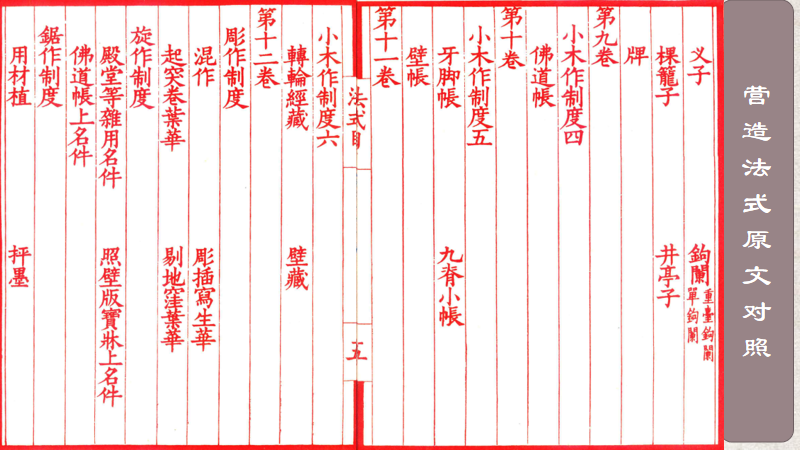 营造法式原文对照
叉子 鉤闌 重臺鉤闌 單鉤闌
棵籠子 井亭子
牌
第九卷
小木作制度四
佛道帳
第十卷
小木作制度五
牙脚帳 九脊小帳
壁帳
第十一卷
法式目 五
小木作制度六
轉輪經藏 壁藏
第十二卷
彫作制度
混作 彫插寫生華
起突卷葉華 剔地窪葉華
旋作制度
殿堂等雜用名件 照壁版寶牀上名件
佛道帳上名件
鋸作制度
用材植 抨墨